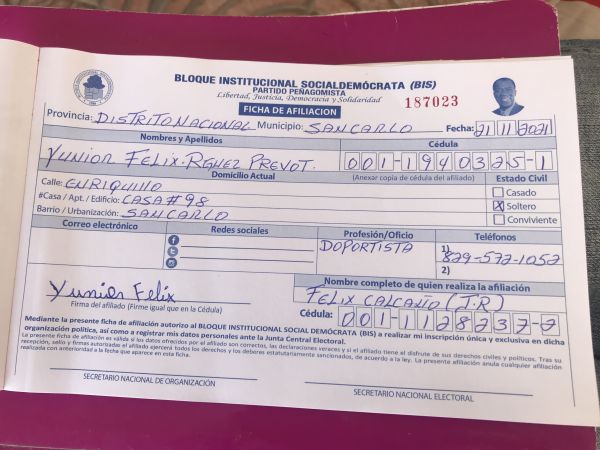 BLOQUE INSTITUCIONAL SOCIALDEMÓCRATA (BIS)
PARTIDO PEÑAGOMISTA
Libertad, Justicia, Democracia y Solidaridad
187023
FICHA DE AFILIACION
Provincia: DISTRITO NACIONAL Municipio: SANCARLO Fecha: 21 11 2021
Nombres y Apellidos Cédula
YUNIOR FELIX. RGNEZ PREVOT. 001-1940325-1
Domicilio Actual (Anexar copia de cédula del afiliado) Estado Civil
Calle: ENRIQUILLO Casado
#Casa / Apt. / Edificio: CASA # 98 X Soltero
Barrio / Urbanización: SANCARLO Conviviente
Correo electrónico Redes sociales Profesión/Oficio Teléfonos
DOPORTISTA 1) 829-572-1052
2)
Nombre completo de quien realiza la afiliación
Yunior Felix FELIX CALCAÑO (J.R)
Firma del afiliado (Firme igual que en la Cédula) Cédula: 001-1128237-2
Mediante la presente ficha de afiliación autorizo al BLOQUE INSTITUCIONAL SOCIAL DEMÓCRATA (BIS) a realizar mi inscripción única y exclusiva en dicha
organización política, así como a registrar mis datos personales ante la Junta Central Electoral.
La presente ficha de afiliación es válida si los datos ofrecidos por el afiliado son correctos, las declaraciones veraces y si el afiliado tiene el disfrute de sus derechos civiles y políticos. Tras su
recepción, sello y firmas autorizadas el afiliado ejercerá todos los derechos y los deberes estatutariamente sancionados, de acuerdo a la ley. La presente afiliación anula cualquier afiliación
realizada con anterioridad a la fecha que aparece en esta ficha.
SECRETARIO NACIONAL DE ORGANIZACIÓN SECRETARIO NACIONAL ELECTORAL